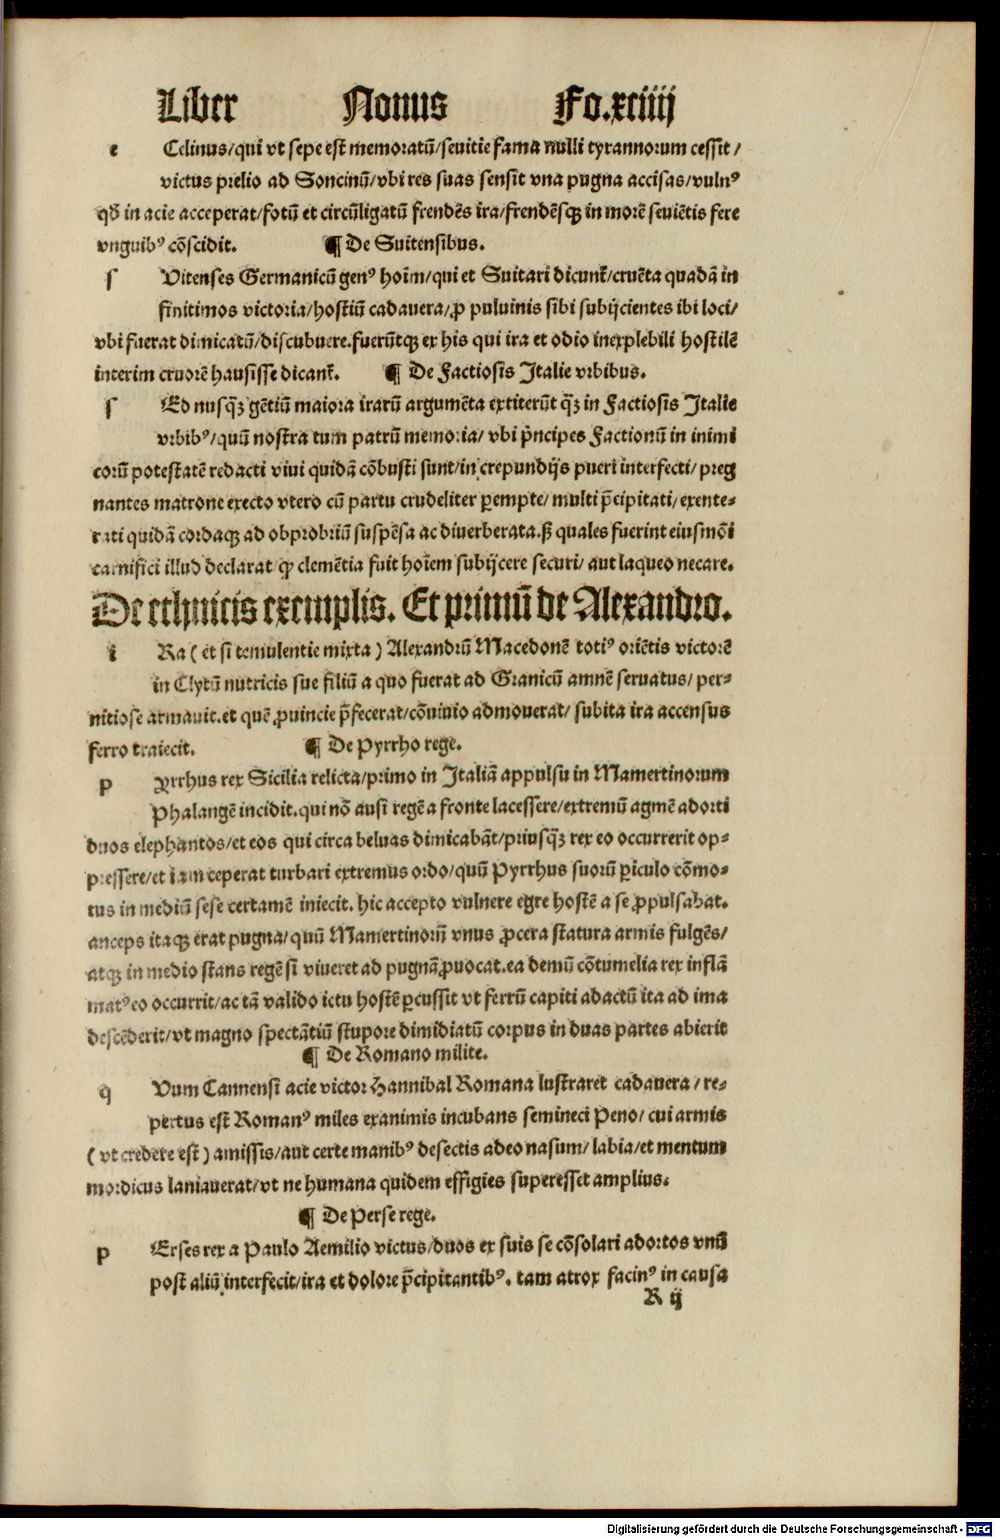 Liber Nonus Fo.xciiij
e Celinus/qui vt sepe est memoratū/seuitie fama nulli tyrannorum cessit/
victus prelio ad Soncinū/vbi res suas sensit vna pugna accisas/vulnꝰ
qđ in acie acceperat/fotū et circūligatū frendēs ira/frendēsqꝫ in morē seuiētis fere
vnguibꝰ cōscidit. ¶ De Suitensibus.
s Vitenses Germanicū genꝰ hoīm/qui et Suitari dicunt̃/cruēta quadā in
finitimos victoria/hostiū cadauera/ꝓ puluinis sibi subijcientes ibi loci/
vbi fuerat dimicatū/discubuere.fuerūtqꝫ ex his qui ira et odio inexplebili hostilē
interim cruorē hausisse dicant̃. ¶ De Factiosis Italie vrbibus.
s Ed nusq̄ꝫ gētiū maiora irarū argumēta extiterūt q̄ꝫ in Factiosis Italie
vrbibꝰ/quū nostra tum patrū memoria/vbi p̃ncipes Factionū in inimi
corū potestatē redacti viui quidā cōbusti sunt/in crepundijs pueri interfecti/preg
nantes matrone execto vtero cū partu crudeliter ꝑempte/multi p̄cipitati/exente-
rati quidā cordaqꝫ ad obprobriū suspēsa ac diuerberata.ꝭ quales fuerint eiusmōi
carnifici illud declarat ꝙ clemētia fuit hoīem subijcere securi/aut laqueo necare.
De ethnicis exemplis. Et primū de Alexandro.
i Ra (et si temulentie mixta) Alexandrū Macedonē totiꝰ oriētis victorē
in Clytū nutricis sue filiū a quo fuerat ad Granicū amnē seruatus/per-
nitiose armauit.et quē ꝓuincie p̄fecerat/cōuiuio admouerat/subita ira accensus
ferro traiecit. ¶ De Pyrrho rege.
p Yrrhus rex Sicilia relicta/primo in Italiā appulsu in Mamertinorum
Phalangē incidit.qui nō ausi regē a fronte lacessere/extremū agmē adorti
duos elephantos/et eos qui circa beluas dimicabāt/priusq̄ꝫ rex eo occurrerit op-
pressere/et iam ceperat turbari extremus ordo/quū Pyrrhus suorū ꝑiculo cōmo-
tus in mediū sese certamē iniecit.hic accepto vulnere egre hostē a se ꝓpulsabat.
anceps itaqꝫ erat pugna/quū Mamertinorū vnus ꝓcera statura armis fulgēs/
atqꝫ in medio stans regē si viueret ad pugnā ꝓuocat.ea demū cōtumelia rex inflā
matꝰ eo occurrit/ac tā valido ictu hostē ꝑcussit vt ferrū capiti adactū ita ad ima
descēderit/vt magno spectātiū stupore dimidiatū corpus in duas partes abierit
¶ De Romano milite.
q Vum Cannensi acie victor Hannibal Romana lustraret cadauera/re-
pertus est Romanꝰ miles exanimis incubans semineci Peno/cui armis
(vt credere est) amissis/aut certe manibꝰ desectis adeo nasum/labia/et mentum
mordicus laniauerat/vt ne humana quidem effigies superesset amplius.
¶ De Perse rege.
p Erses rex a Paulo Aemilio victus/duos ex suis se cōsolari adortos vnū
post aliū interfecit/ira et dolore p̄cipitantibꝰ. tam atrox facinꝰ in causa
R ij
Digitalisierung gefördert durch die Deutsche Forschungsgemeinschaft - DFG